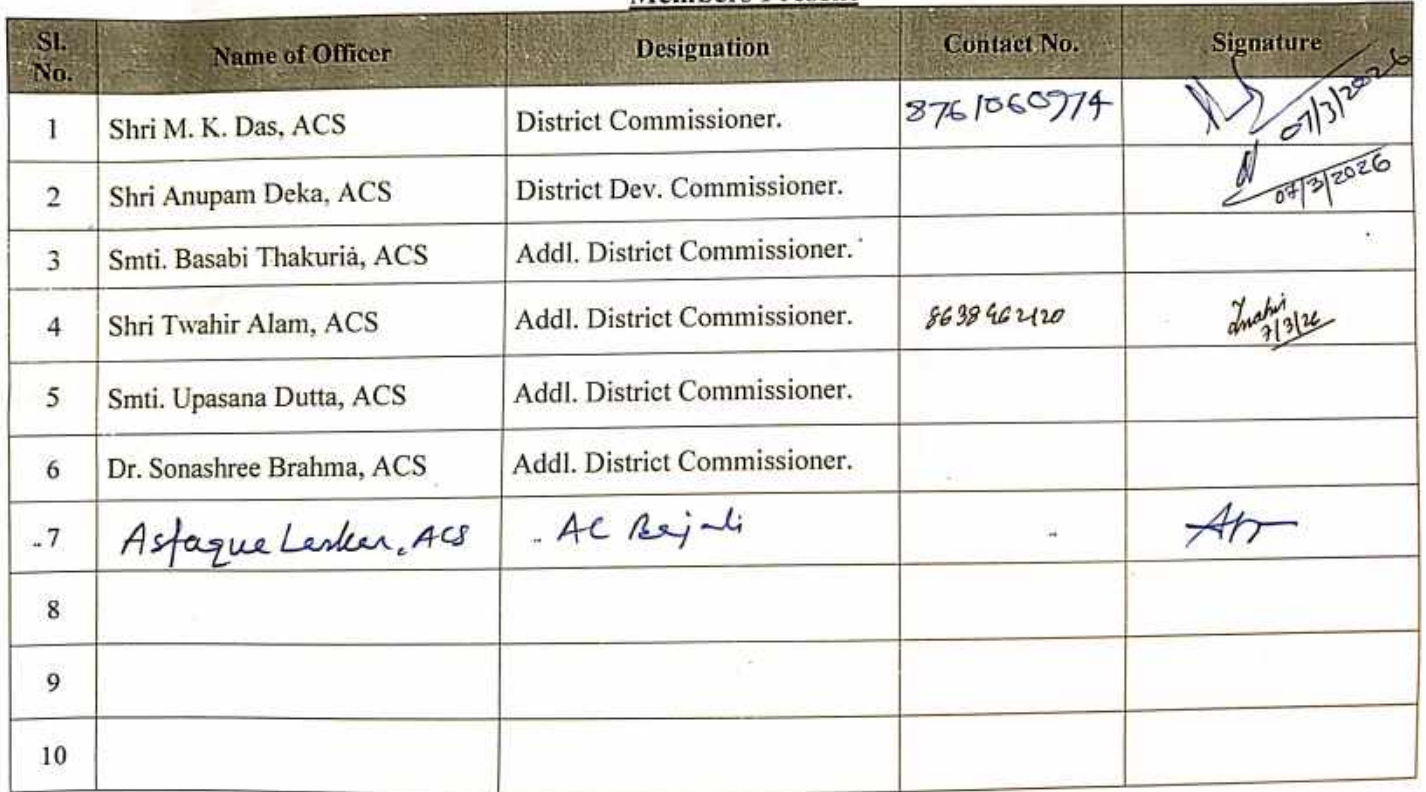 Members Present
Sl. No. Name of Officer Designation Contact No. Signature
1 Shri M. K. Das, ACS District Commissioner. 8761060974 07/3/2026
2 Shri Anupam Deka, ACS District Dev. Commissioner. 07/3/2026
3 Smti. Basabi Thakuria, ACS Addl. District Commissioner.
4 Shri Twahir Alam, ACS Addl. District Commissioner. 7/3/26
5 Smti. Upasana Dutta, ACS Addl. District Commissioner.
6 Dr. Sonashree Brahma, ACS Addl. District Commissioner.
7 Asfaque Lasker, ACS AC Bajali
8
9
10